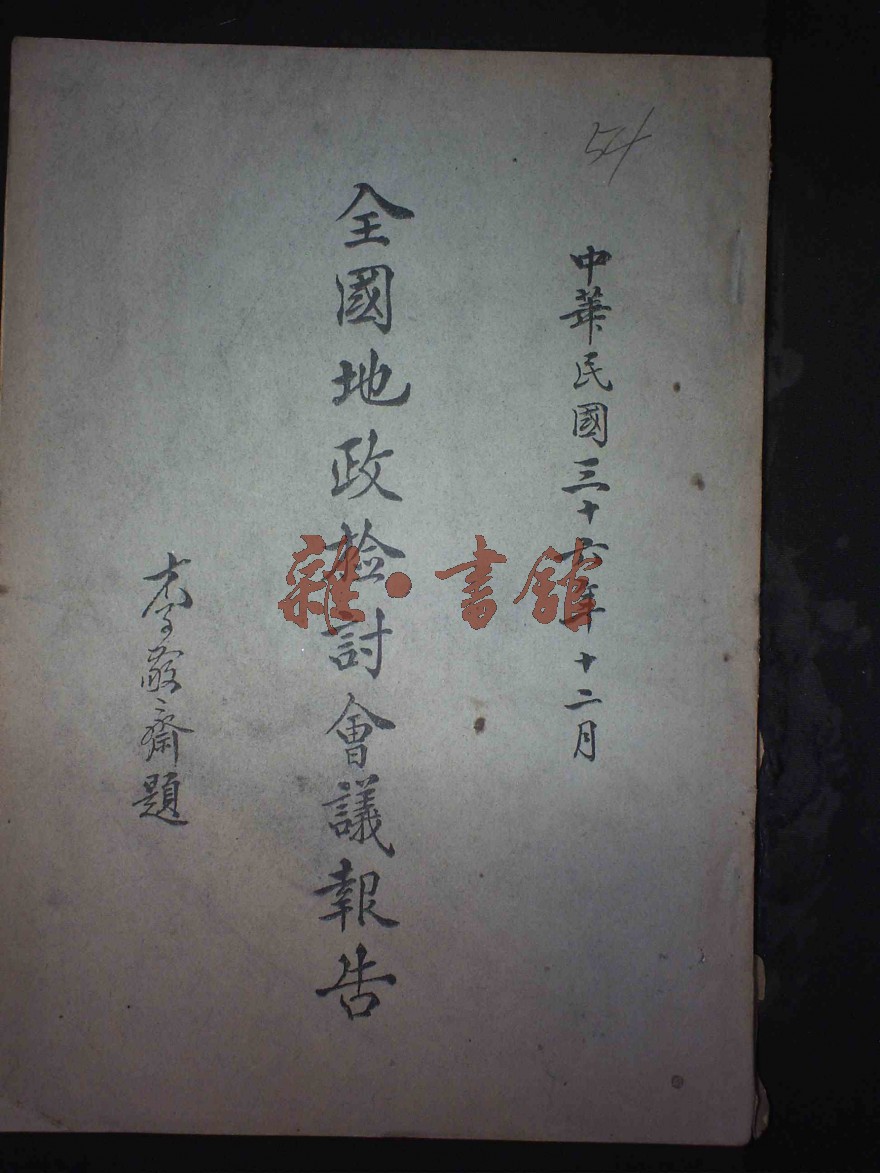 54
中華民國三十六年十二月
全國地政檢討會議報告
李敬齋題
雜·書館